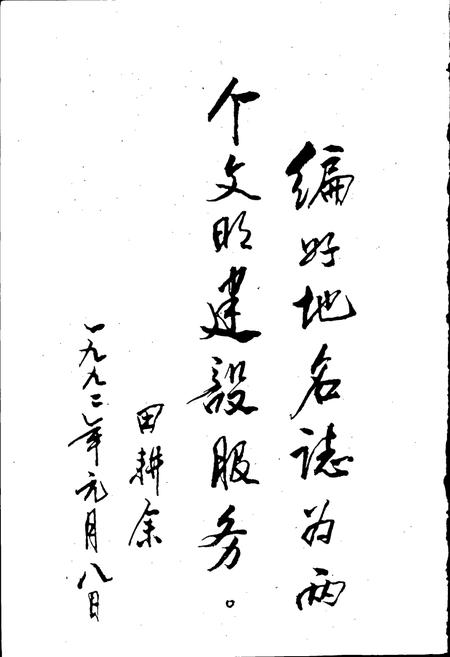 编好地名誌为两
个文明建设服务。
田耕余
一九九二年元月八日